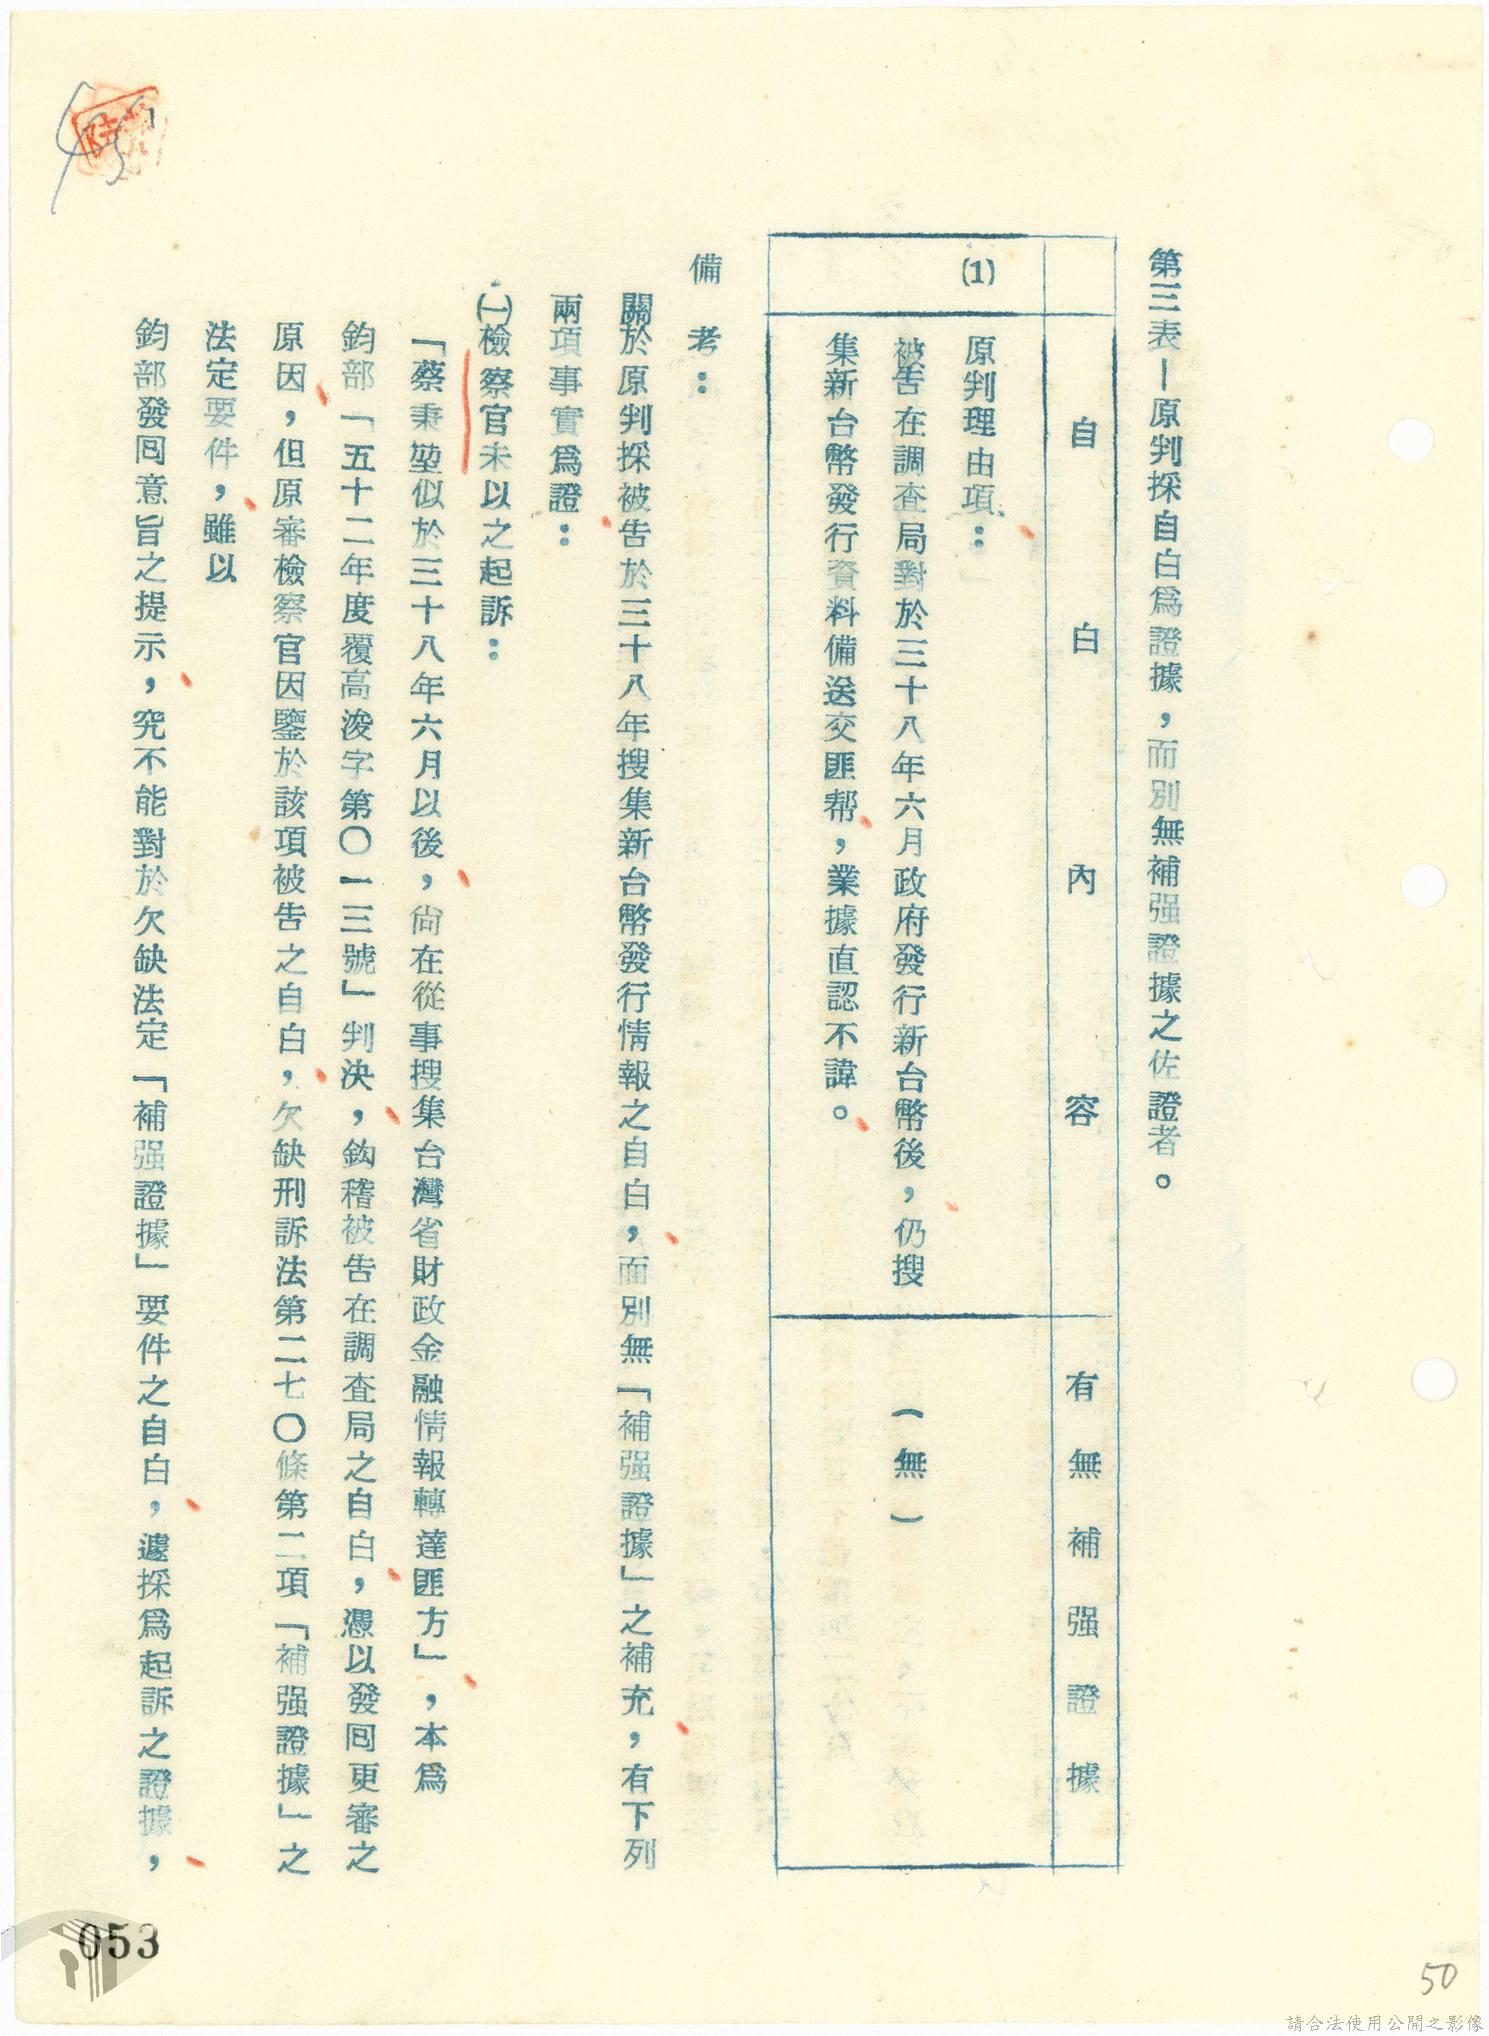 第三表－原判採自白爲證據，而別無補强證據之佐證者。
自白內容
有無補强證據
(1)
原判理由項：
被告在調查局對於三十八年六月政府發行新台幣後，仍搜
集新台幣發行資料備送交匪幇，業據直認不諱。
（無）
備考：
關於原判採被告於三十八年搜集新台幣發行情報之自白，而別無「補强證據」之補充，有下列
兩項事實爲證：
㈠檢察官未以之起訴：
「蔡秉堃似於三十八年六月以後，尙在從事搜集台灣省財政金融情報轉達匪方」，本爲
鈞部「五十二年度覆高浚字第〇一三號」判決，鈎稽被告在調查局之自白，憑以發囘更審之
原因，但原審檢察官因鑒於該項被告之自白，欠缺刑訴法第二七〇條第二項「補强證據」之
法定要件，雖以
鈞部發囘意旨之提示，究不能對於欠缺法定「補强證據」要件之自白，遽採爲起訴之證據，
053
50
請合法使用公開之影像